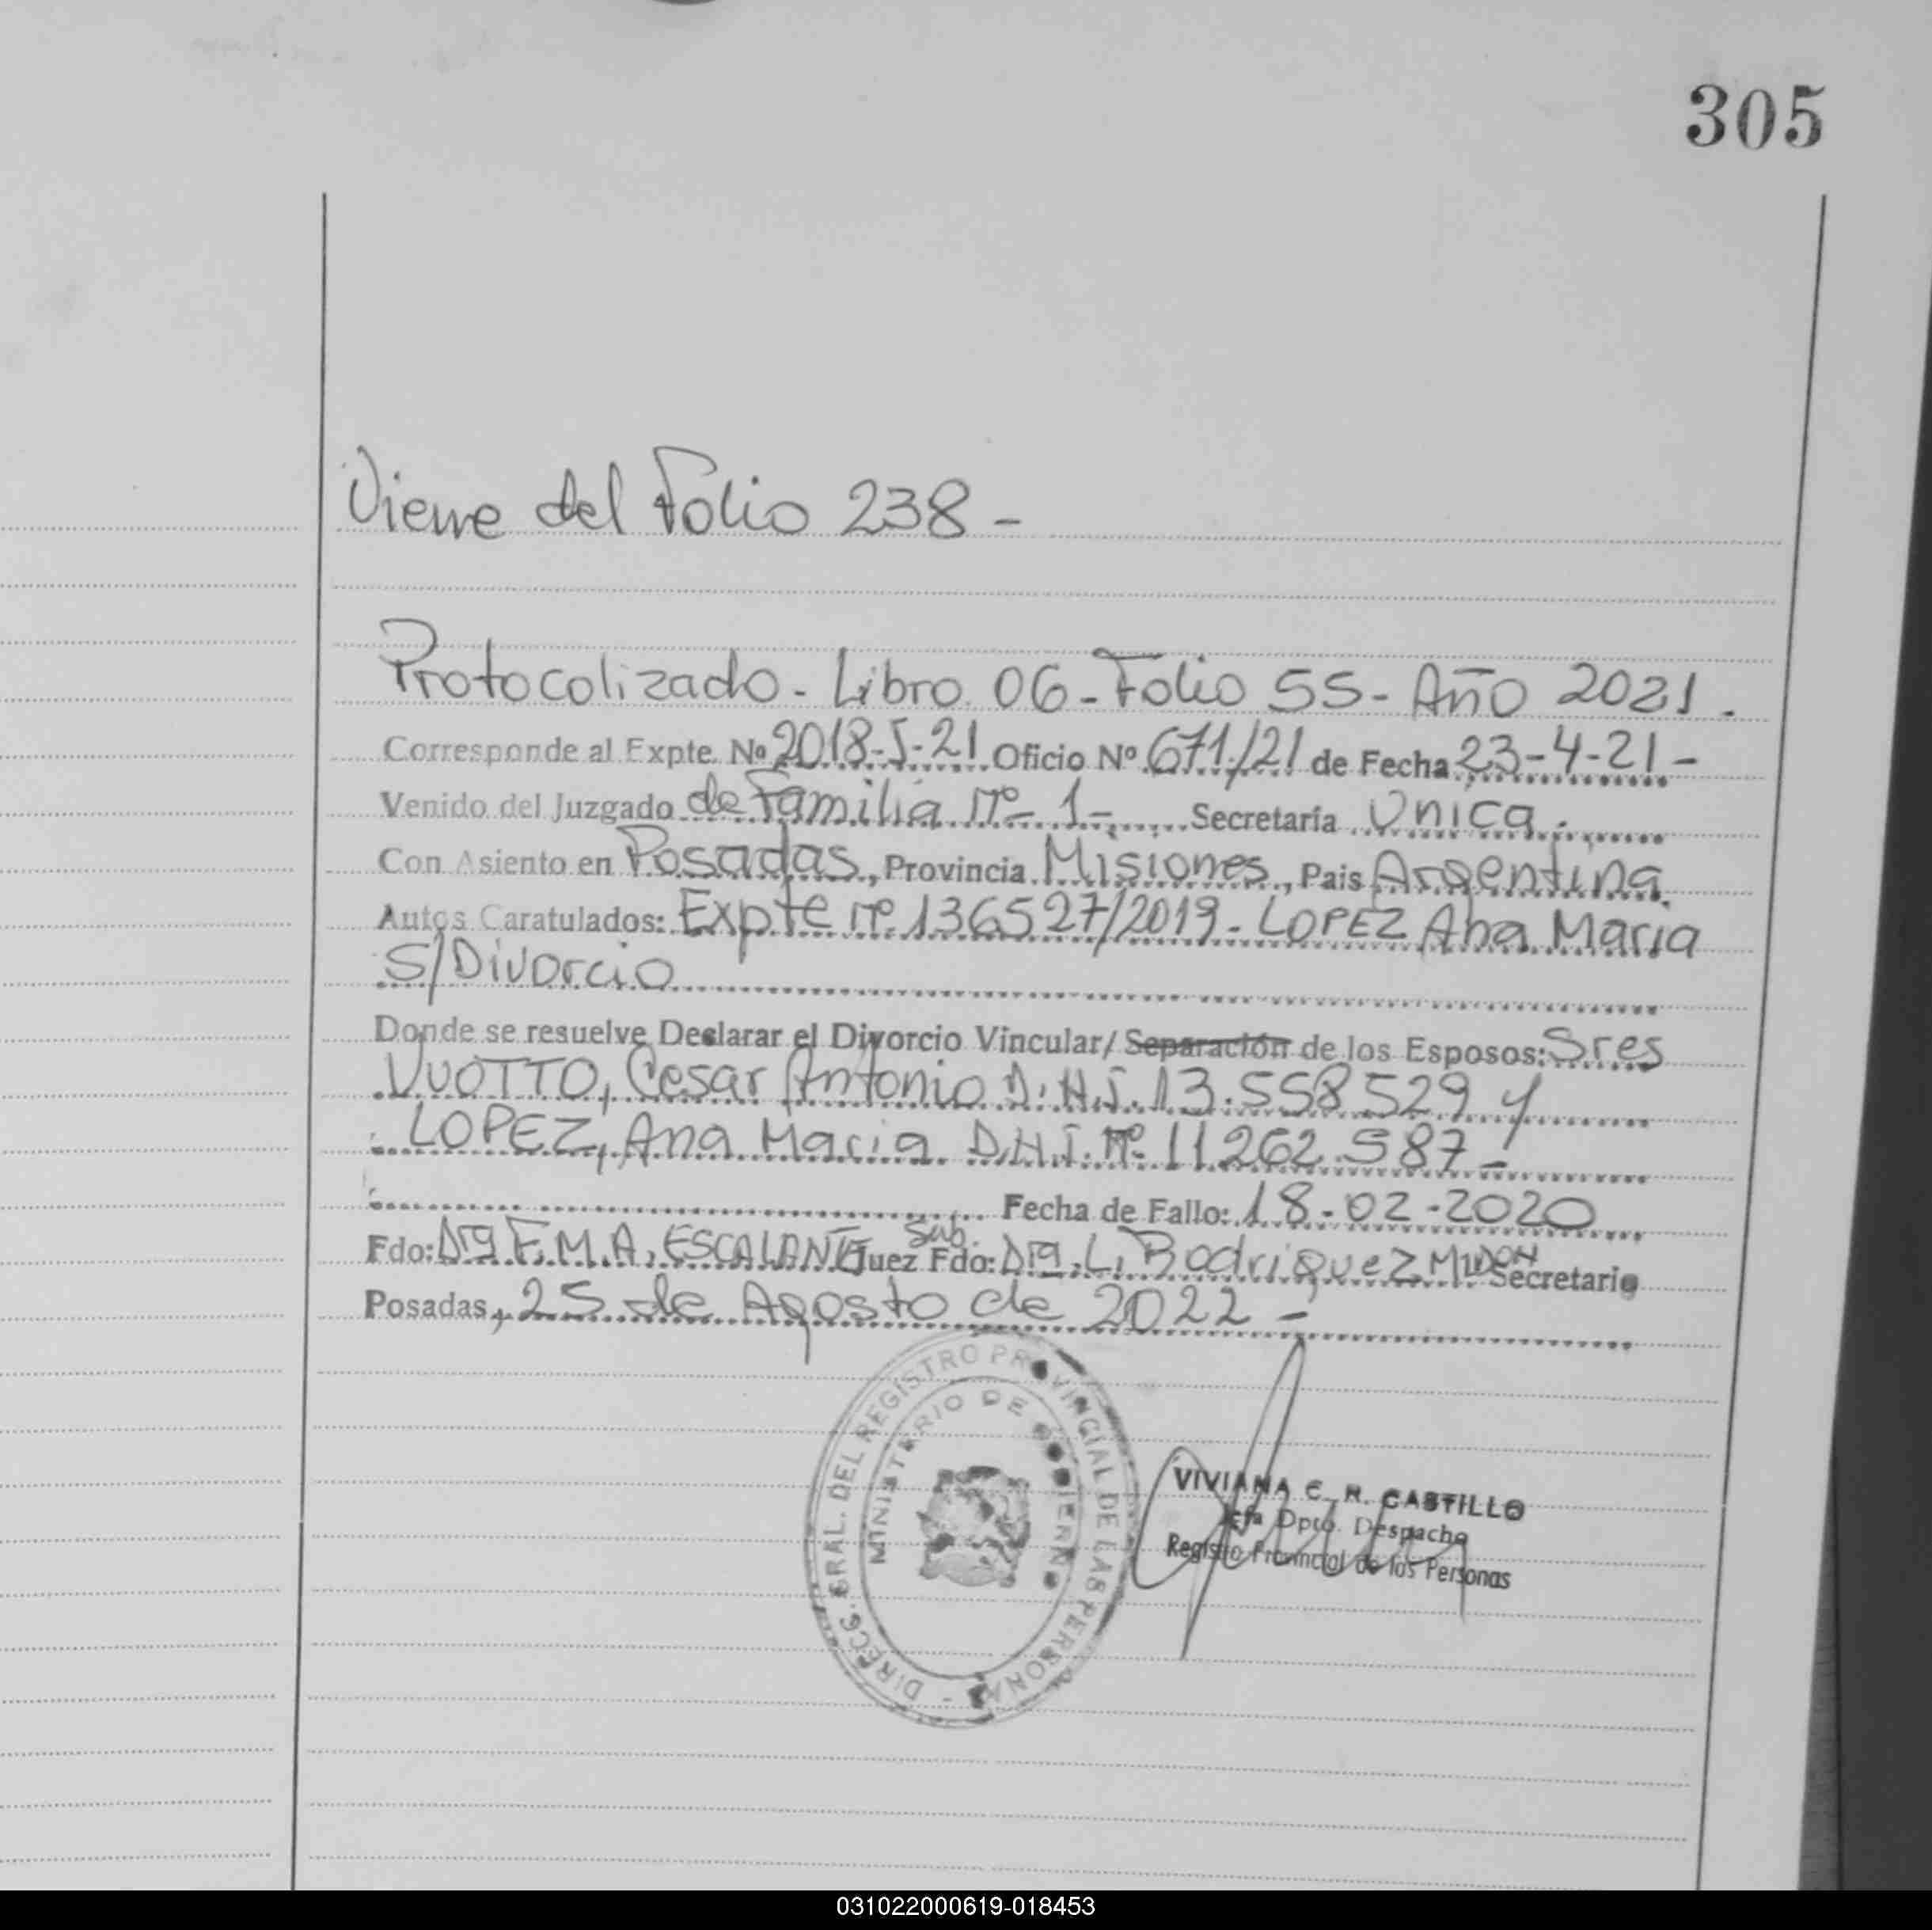 305
Viene del Folio 238 -
Protocolizado - Libro 06 - Folio 55 - Año 2021 .
Corresponde al Expte. Nº 2018-J-21 Oficio Nº 671/21 de Fecha 23-4-21 -
Venido del Juzgado de Familia Nº 1 - Secretaría Unica .
Con Asiento en Posadas, Provincia Misiones, Pais Argentina.
Autos Caratulados: Expte Nº 136527/2019 - LOPEZ Ana Maria
S/Divorcio
Donde se resuelve Declarar el Divorcio Vincular/ Separación de los Esposos: Sres
VUOTTO, Cesar Antonio D.N.I. 13.558529 y
LOPEZ, Ana Maria D.N.I. Nº 11262.587 -
Fecha de Fallo: 18-02-2020
Fdo: Dra F.M.A. ESCALANTE Juez Sub. Fdo: Dra. L. Rodriguez MIDON Secretario
Posadas, 25 de Agosto de 2022 -
DIRECG. GRAL. DEL REGISTRO PROVINCIAL DE LAS PERSONAS -
MINISTERIO DE GOBIERNO
VIVIANA E. R. CASTILLO
Jefa Dpto. Despacho
Registro Provincial de los Personas
031022000619-018453